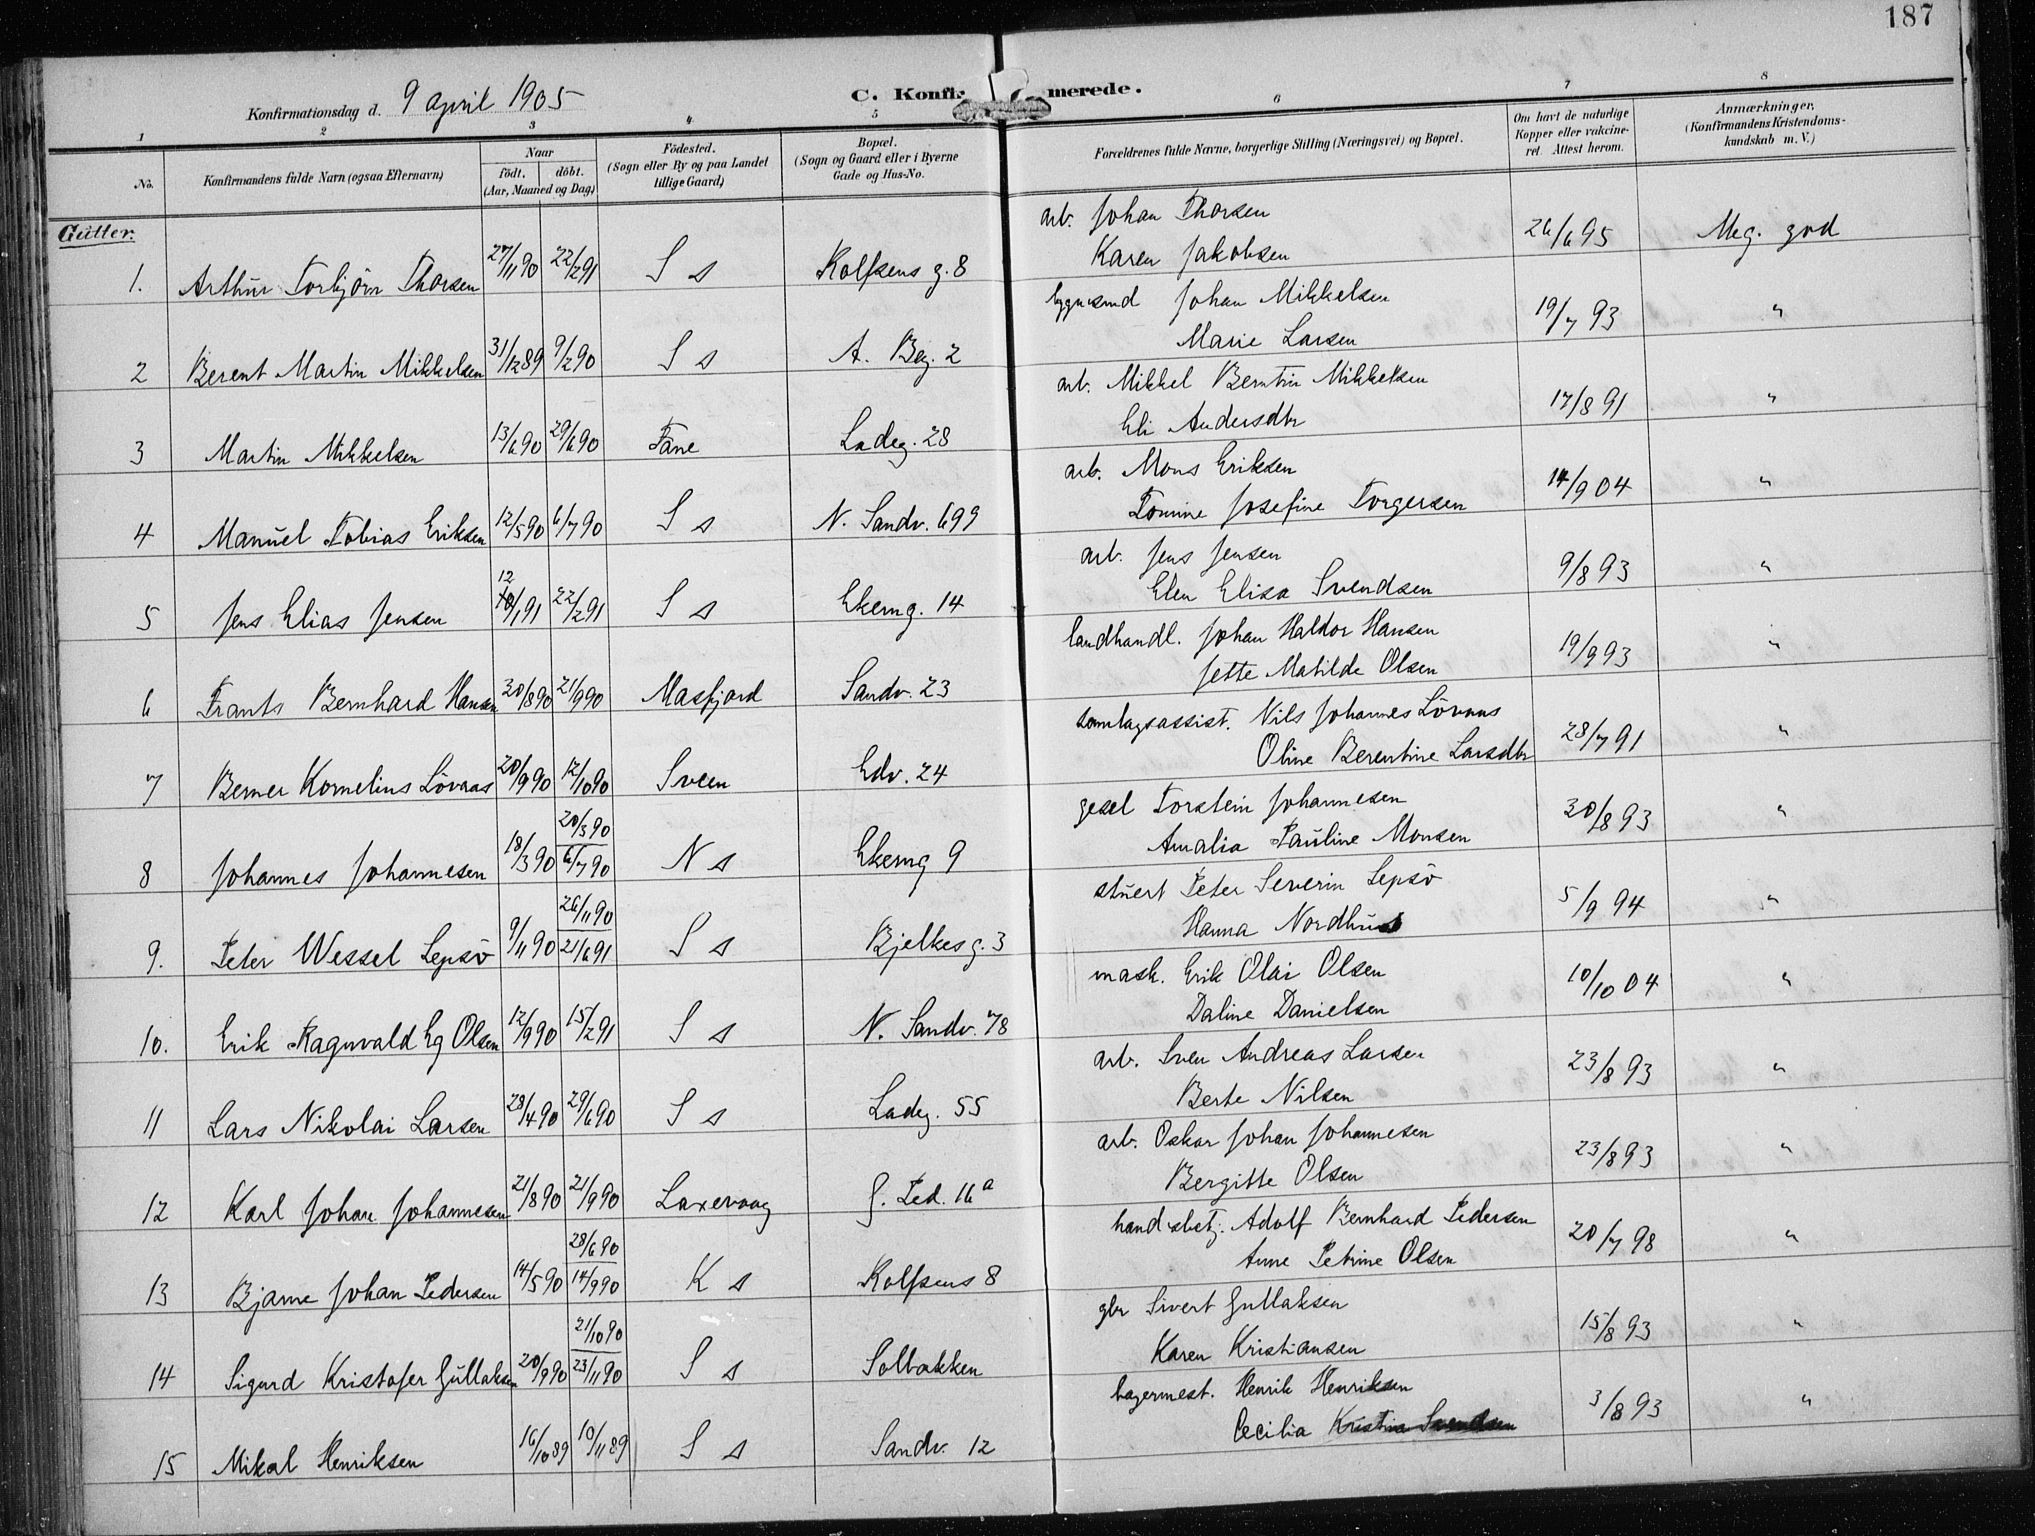 187
Konfirmationsdag d. 9 April 1905
C. Konfir merede.
1 2 3 4 5 6 7 8
No. Konfirmandens fulde Navn (ogsaa Efternavn) Naar födt. döbt. (Aar, Maaned og Dag) Födested. (Sogn eller By og paa Landet tillige Gaard) Bopæl. (Sogn og Gaard eller i Byerne Gade og Hus-No. Forældrenes fulde Navne, borgerlige Stilling (Næringsvei) og Bopæl. Om havt de naturlige Kopper eller vakcineret. Attest herom. Anmærkninger. (Konfirmandens Kristendomskundskab m. V.)
Gutter.
1. Arthur Torbjörn Thorsen 27/11 90 22/2 91 S s Rolfsens g. 8 arb. Johan Thorsen 26/6 95 Meg. god
Karen Jakobsen
2 Berent Martin Mikkelsen 31/12 89 9/2 90 S s A. Beg. 2 Johan Mikkelsen 19/7 93 "
Marie Larsen
3 Martin Mikkelsen 13/6 90 29/6 90 Fane Ladeg. 28 arb. Mikkel Berntin Mikkelsen 17/8 91 "
Eli Andersdtr
4 Manuel Tobias Eriksen 12/5 90 6/7 90 S s N. Sandv. 699 arb. Mons Eriksen 14/9 04 "
Tomine Josefine Torgersen
5 Jens Elias Jensen 12/1 91 22/2 91 S s Ekerng. 14 arb. Jens Jensen 9/8 93 "
Elen Elisa Svendsen
6 Frants Bernhard Hansen 20/8 90 21/9 90 Masfjord Sandv. 23 landhandl. Johan Haldor Hansen 19/9 93 "
Jette Matilde Olsen
7 Berner Kornelius Lövaas 20/9 90 12/10 90 Sveen Edv. 24 samlagsassist. Nils Johannes Lövaas 28/7 91 "
Oline Berentine Larsdtr
8 Johannes Johannesen 18/3 90 20/3 90 6/7 90 N s Ekerng 9 gesel Torstein Johannesen 30/8 93 "
Amalia Pauline Monsen
9. Peter Wessel Lepsö 9/11 90 26/11 90 21/6 91 S s Bjelkes g. 3 stuert Peter Severin Lepsö 5/9 94 "
Hanna Nordhus
10. Erik Ragnvald Eg Olsen 12/9 90 15/2 91 S s N. Sandv. 78 mask. Erik Olai Olsen 10/10 04 "
Daline Danielsen
11 Lars Nikolai Larsen 28/4 90 29/6 90 S s Ladeg. 55 arb. Sven Andreas Larsen 23/8 93 "
Berte Nilsen
12 Karl Johan Johannesen 21/8 90 21/9 90 Laxevaag S. Ped. 16a arb. Oskar Johan Johannesen 23/8 93 "
Bergitte Olsen
13 Bjarne Johan Pedersen 14/5 90 28/6 90 14/9 90 K s Rolfsens 8 handelsbetj. Adolf Bernhard Pedersen 20/7 98 "
Anne Petrine Olsen
14 Sigurd Kristofer Gullaksen 20/9 90 21/10 90 23/11 90 S s Solbakken gbr Sivert Gullaksen 15/8 93 "
Karen Kristiansen
15 Mikal Henriksen 16/10 89 10/11 89 S s Sandv. 12 bagermest. Henrik Henriksen 3/8 93 "
Cecilia Kristina Svendsen